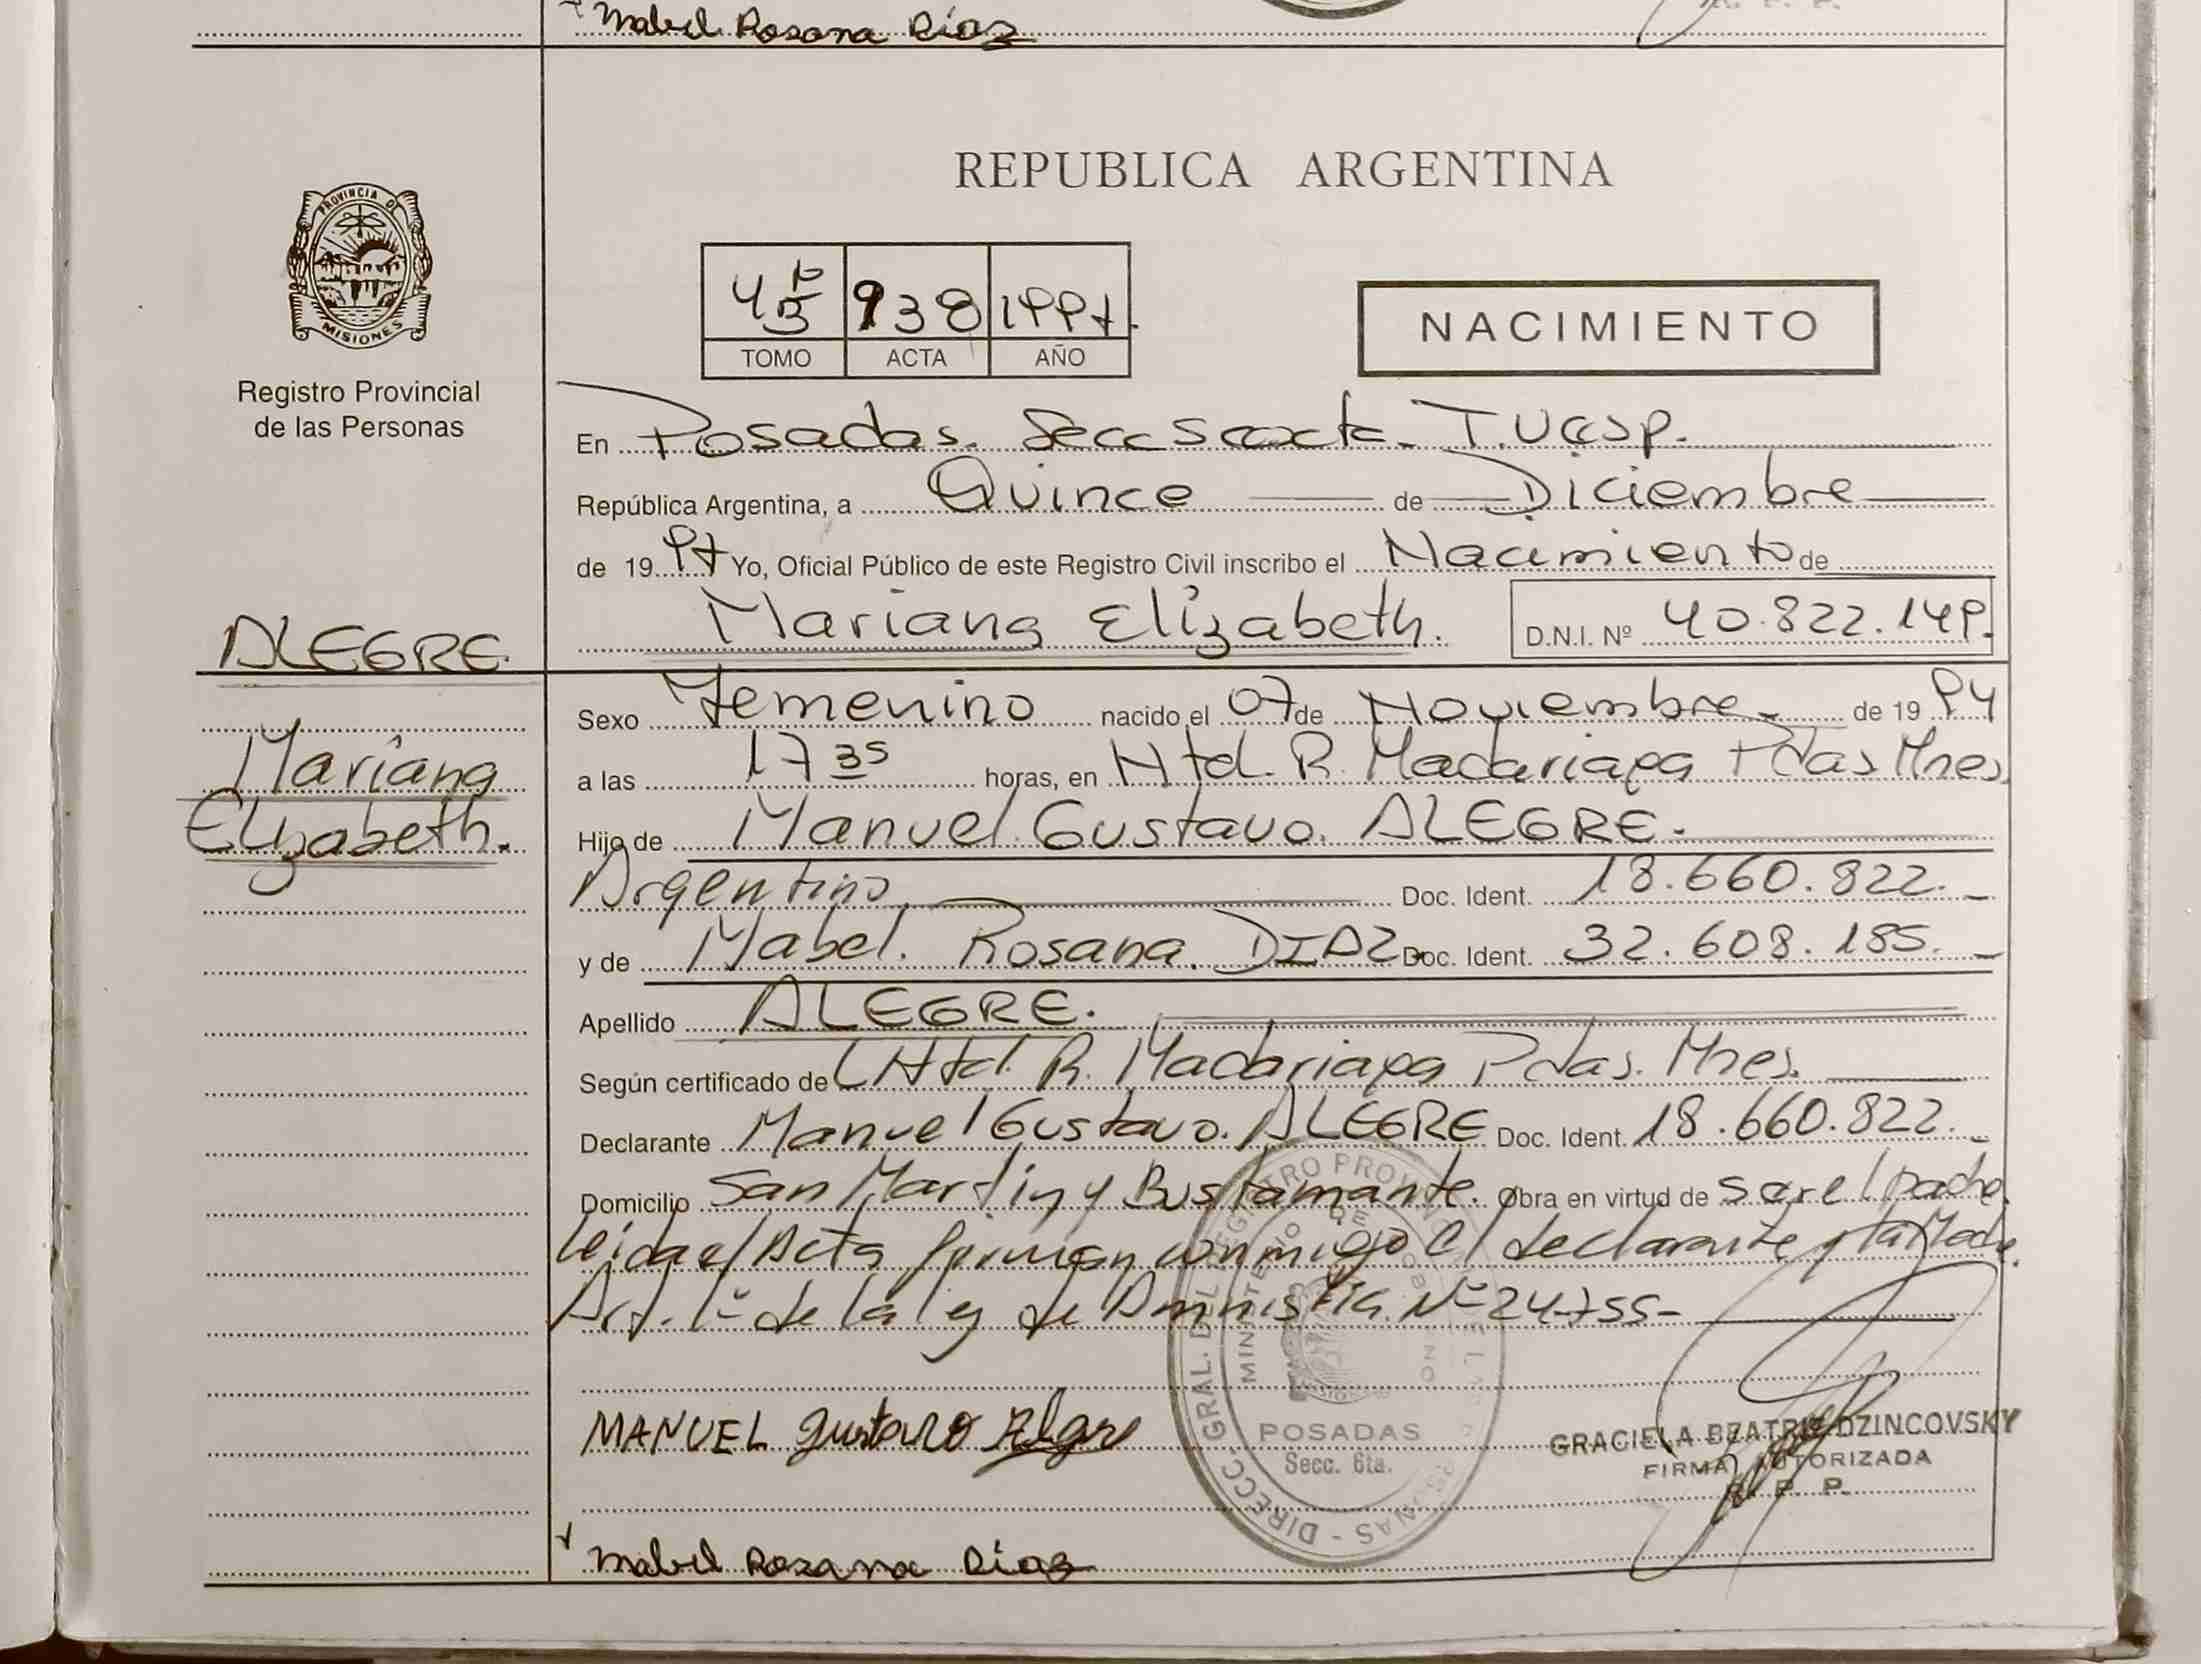 Mabel Rosana Diaz
REPUBLICA ARGENTINA
PROVINCIA DE
MISIONES
Registro Provincial
de las Personas
938 1997.
TOMO ACTA AÑO
NACIMIENTO
En Posadas. Secc Sexta.
República Argentina, a Quince de Diciembre
de 1997 Yo, Oficial Público de este Registro Civil inscribo el Nacimiento de
Mariana Elizabeth. D.N.I. Nº 40.822.149.
ALEGRE.
Mariana
Elizabeth.
Sexo Femenino nacido el 07 de Noviembre. de 1994
a las 17 35 horas, en Htal. R. Madariaga Pdas Mnes.
Hijo de Manuel Gustavo. ALEGRE.
Argentino Doc. Ident. 18.660.822.
y de Mabel. Rosana. DIAZ. Doc. Ident. 32.608.185.
Apellido ALEGRE.
Según certificado de Htal. R. Madariaga Pdas. Mnes.
Declarante Manuel Gustavo. ALEGRE Doc. Ident. 18.660.822.
Domicilio San Martin y Bustamante. Obra en virtud de ser el padre.
Leida el Acta firman conmigo el declarante y la Madre.
Art. 1º de la ley de Amnistia Nº 24755-
MANUEL Gustavo Alegre
GRACIELA BEATRIZ DZINCOVSKY
FIRMA AUTORIZADA
R. P. P.
POSADAS
Secc. 6ta.
Mabel Rosana Diaz